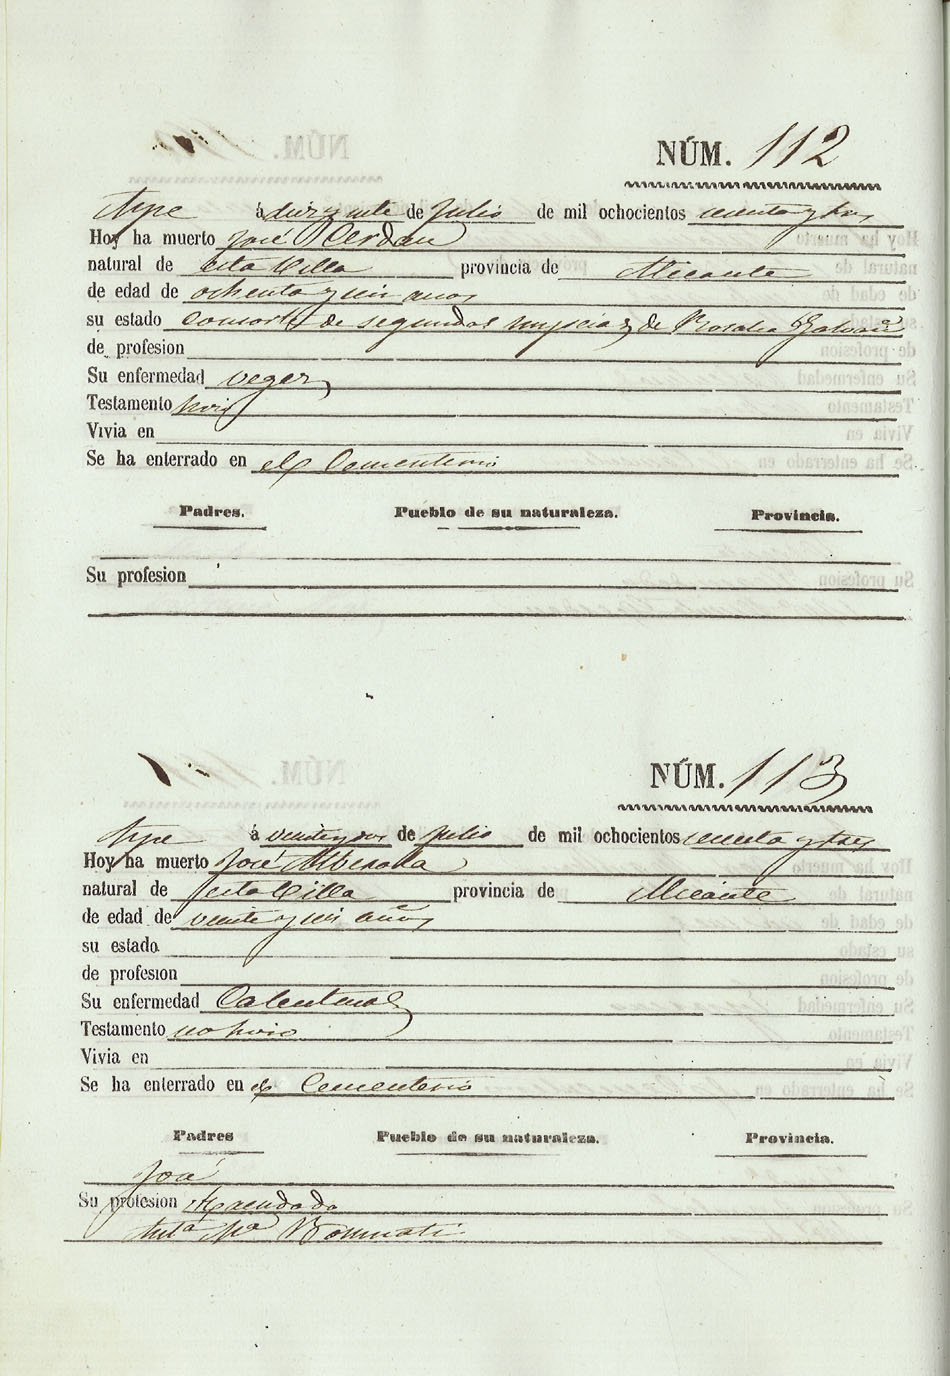 NÚM. 112
Aspe á diez y siete de Julio de mil ochocientos
Hoy ha muerto José Cerdan
natural de esta Villa provincia de Alicante
de edad de ochenta y seis anos
su estado consorte de segundas nupcias de Rosalia Galvañ
de profesion
Su enfermedad vegez
Testamento hizo
Vivia en
Se ha enterrado en el Cementerio
Padres. Pueblo de su naturaleza. Provincia.
Su profesion
NÚM. 113
Aspe á veinte y dos de Julio de mil ochocientos
Hoy ha muerto José Alberola
natural de esta Villa provincia de Alicante
de edad de veinte y seis años
su estado
de profesion
Su enfermedad Calenturas
Testamento no hizo
Vivia en
Se ha enterrado en el Cementerio
Padres Pueblo de su naturaleza. Provincia.
José
Su profesion Hacendado
Antᵃ Mᵃ